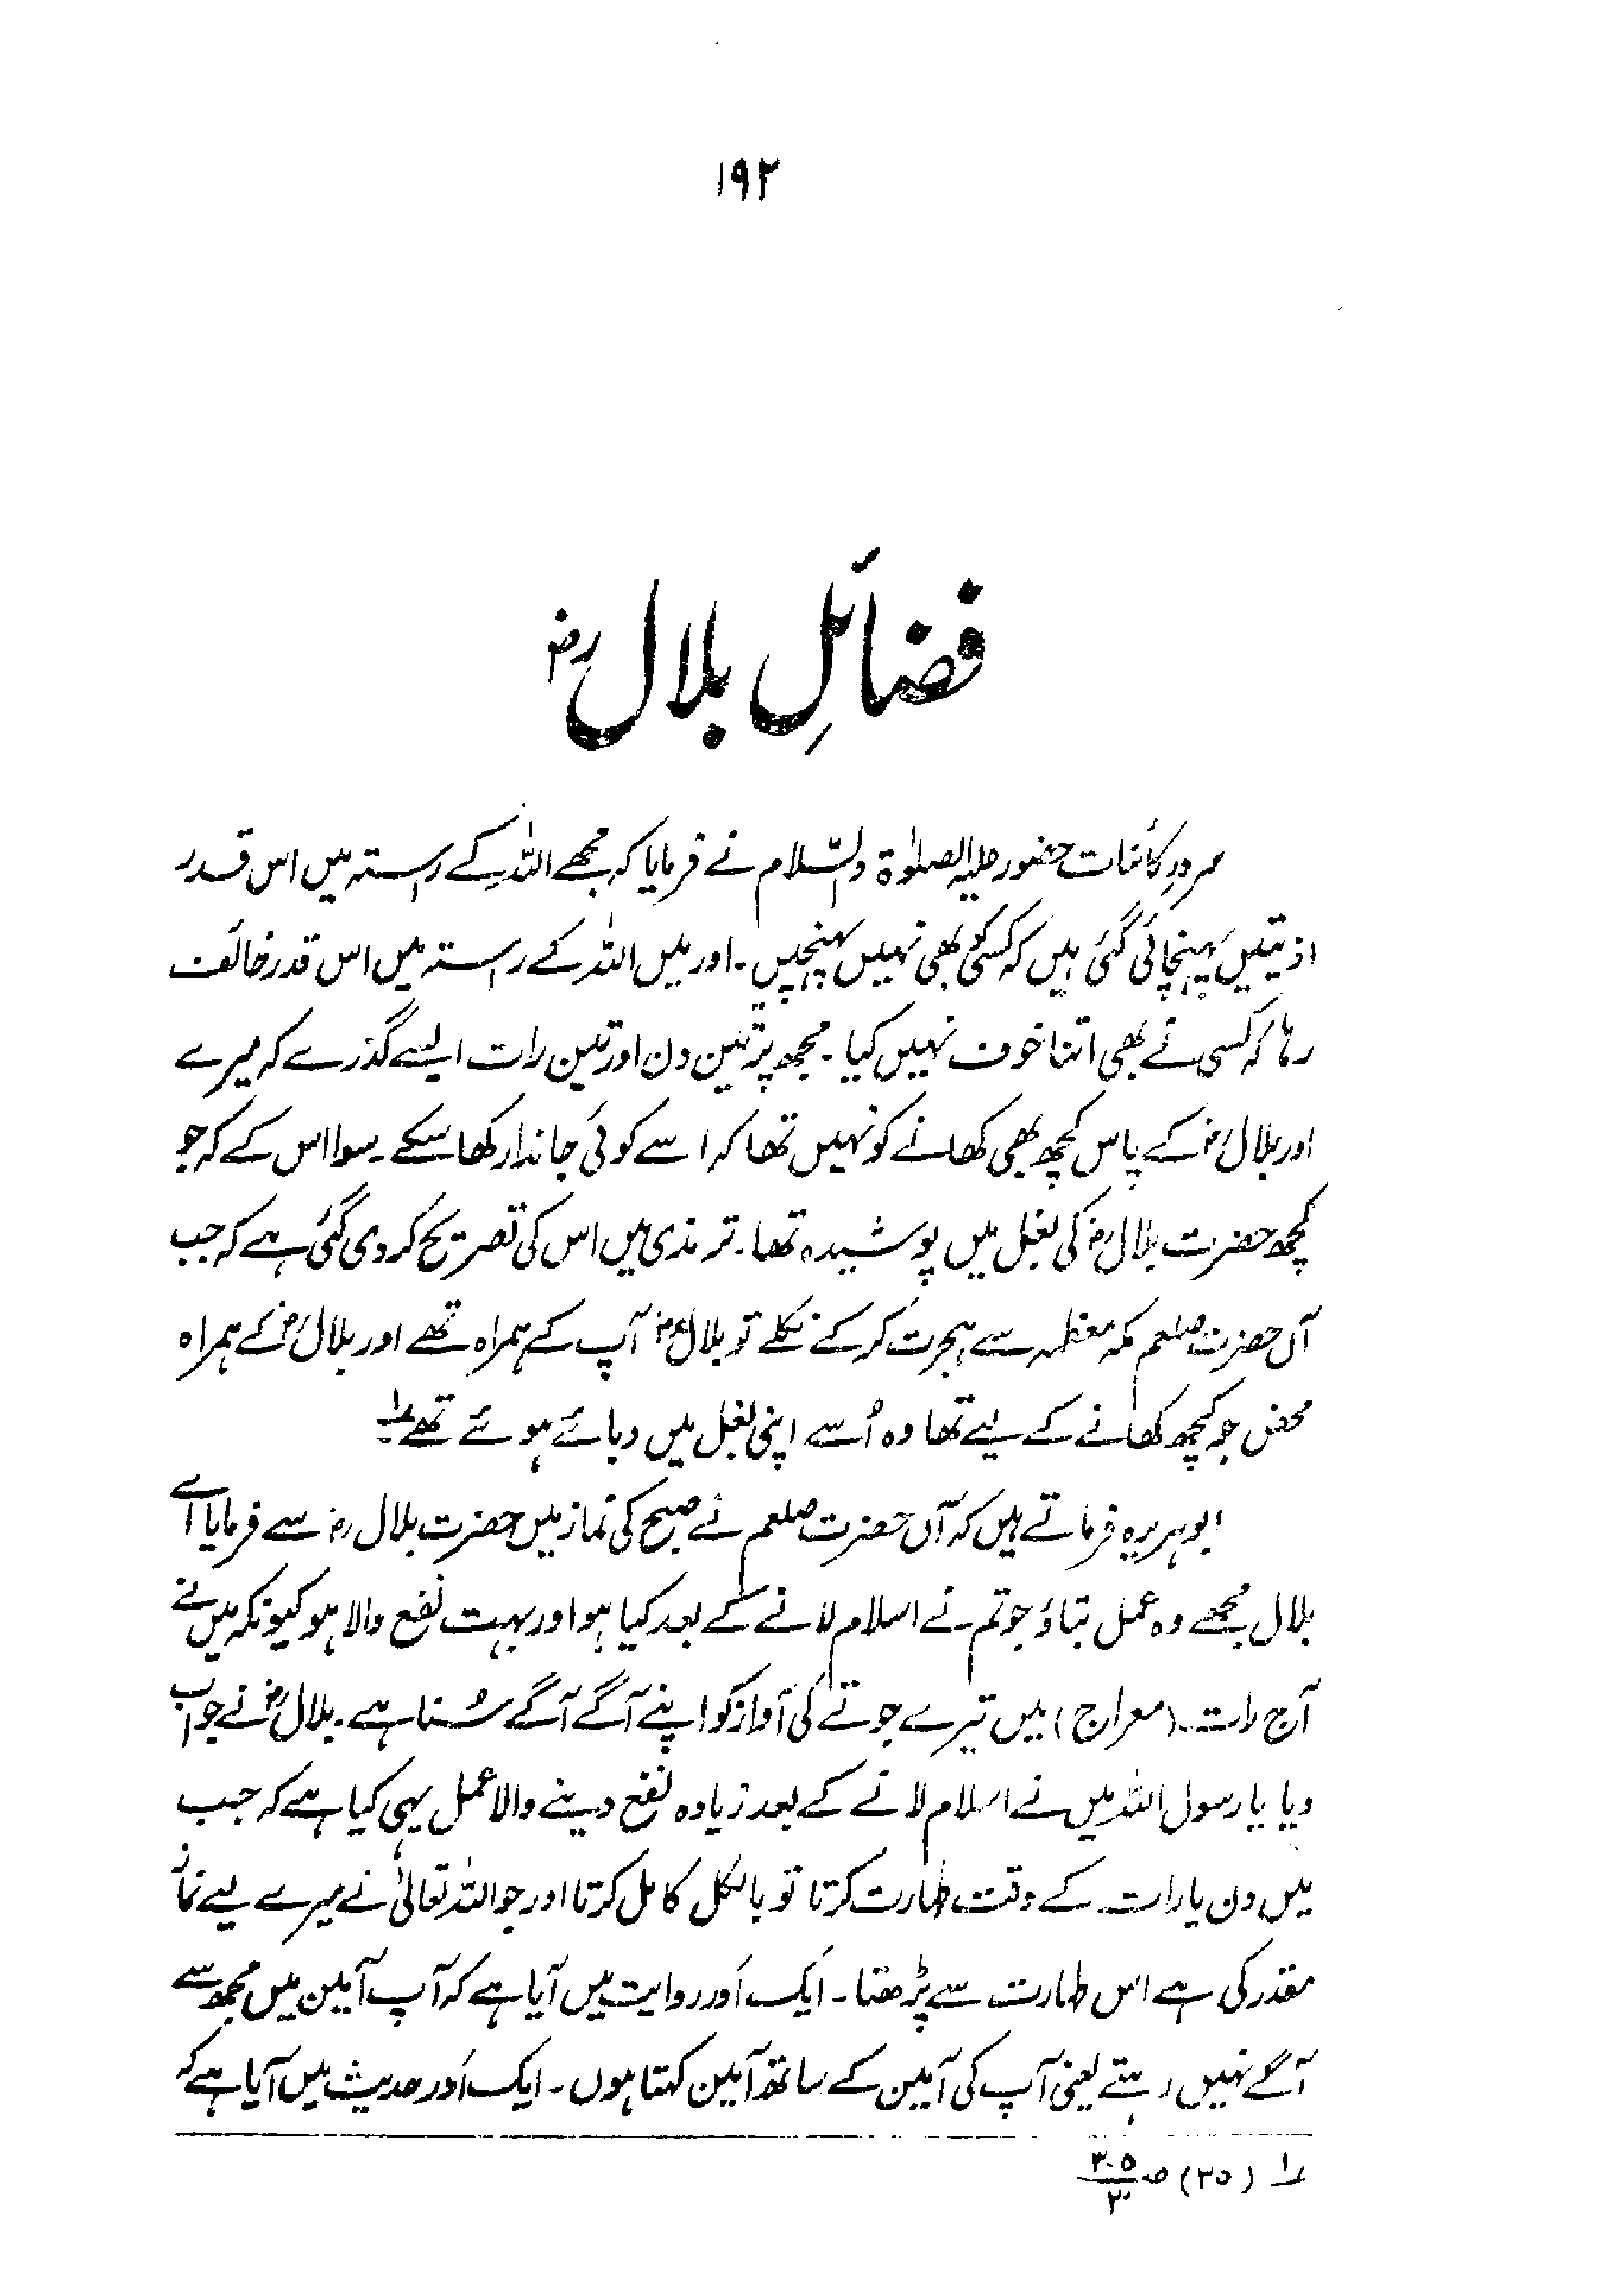 ۱۹۲
فضائلِ بلال رض
سرورِ کائنات حضور علیہ الصلوٰۃ والسّلام نے فرمایا کہ مجھے اللہ کے راستہ میں اس قدر
اذیتیں پہنچائی گئی ہیں کہ کسی کو بھی نہیں پہنچیں۔ اور میں اللہ کے راستہ میں اس قدر خائف
رہا کہ کسی نے بھی اتنا خوف نہیں کیا۔ مجھ پر تین دن اور تین رات ایسے گذرے کہ میرے
اور بلالؓ کے پاس کچھ بھی کھانے کو نہیں تھا کہ اسے کوئی جاندار کھا سکے۔ سوا اس کے کہ جو
کچھ حضرت بلالؓ کی بغل میں پوشیدہ تھا۔ ترمذی میں اس کی تصریح کر دی گئی ہے کہ جب
آں حضرت صلعم مکہ معظمہ سے ہجرت کر کے نکلے تو بلالؓ آپ کے ہمراہ تھے اور بلالؓ کے ہمراہ
محض جو کچھ کھانے کے لیے تھا وہ اُسے اپنی بغل میں دبائے ہوئے تھے ۱؎
ابوہریرہ فرماتے ہیں کہ آں حضرت صلعم نے صبح کی نماز میں حضرت بلال رض سے فرمایا اے
بلال مجھے وہ عمل بتاؤ جو تم نے اسلام لانے کے بعد کیا ہو اور بہت نفع والا ہو کیونکہ میں نے
آج رات (معراج) میں تیرے جوتے کی آواز کو اپنے آگے آگے سُنا ہے۔ بلالؓ نے جواب
دیا یا رسول اللہ میں نے اسلام لانے کے بعد زیادہ نفع دینے والا عمل یہی کیا ہے کہ جب
میں دن یا رات کے وقت طہارت کرتا تو بالکل کامل کرتا اور جو اللہ تعالیٰ نے میرے لیے نماز
مقدر کی ہے اس طہارت سے پڑھتا۔ ایک اَور روایت میں آیا ہے کہ آپ آمین میں مجھ سے
آگے نہیں رہتے یعنی آپ کی آمین کے ساتھ آمین کہتا ہوں۔ ایک اَور حدیث میں آیا ہے کہ
۱؎ (۳۵) ص